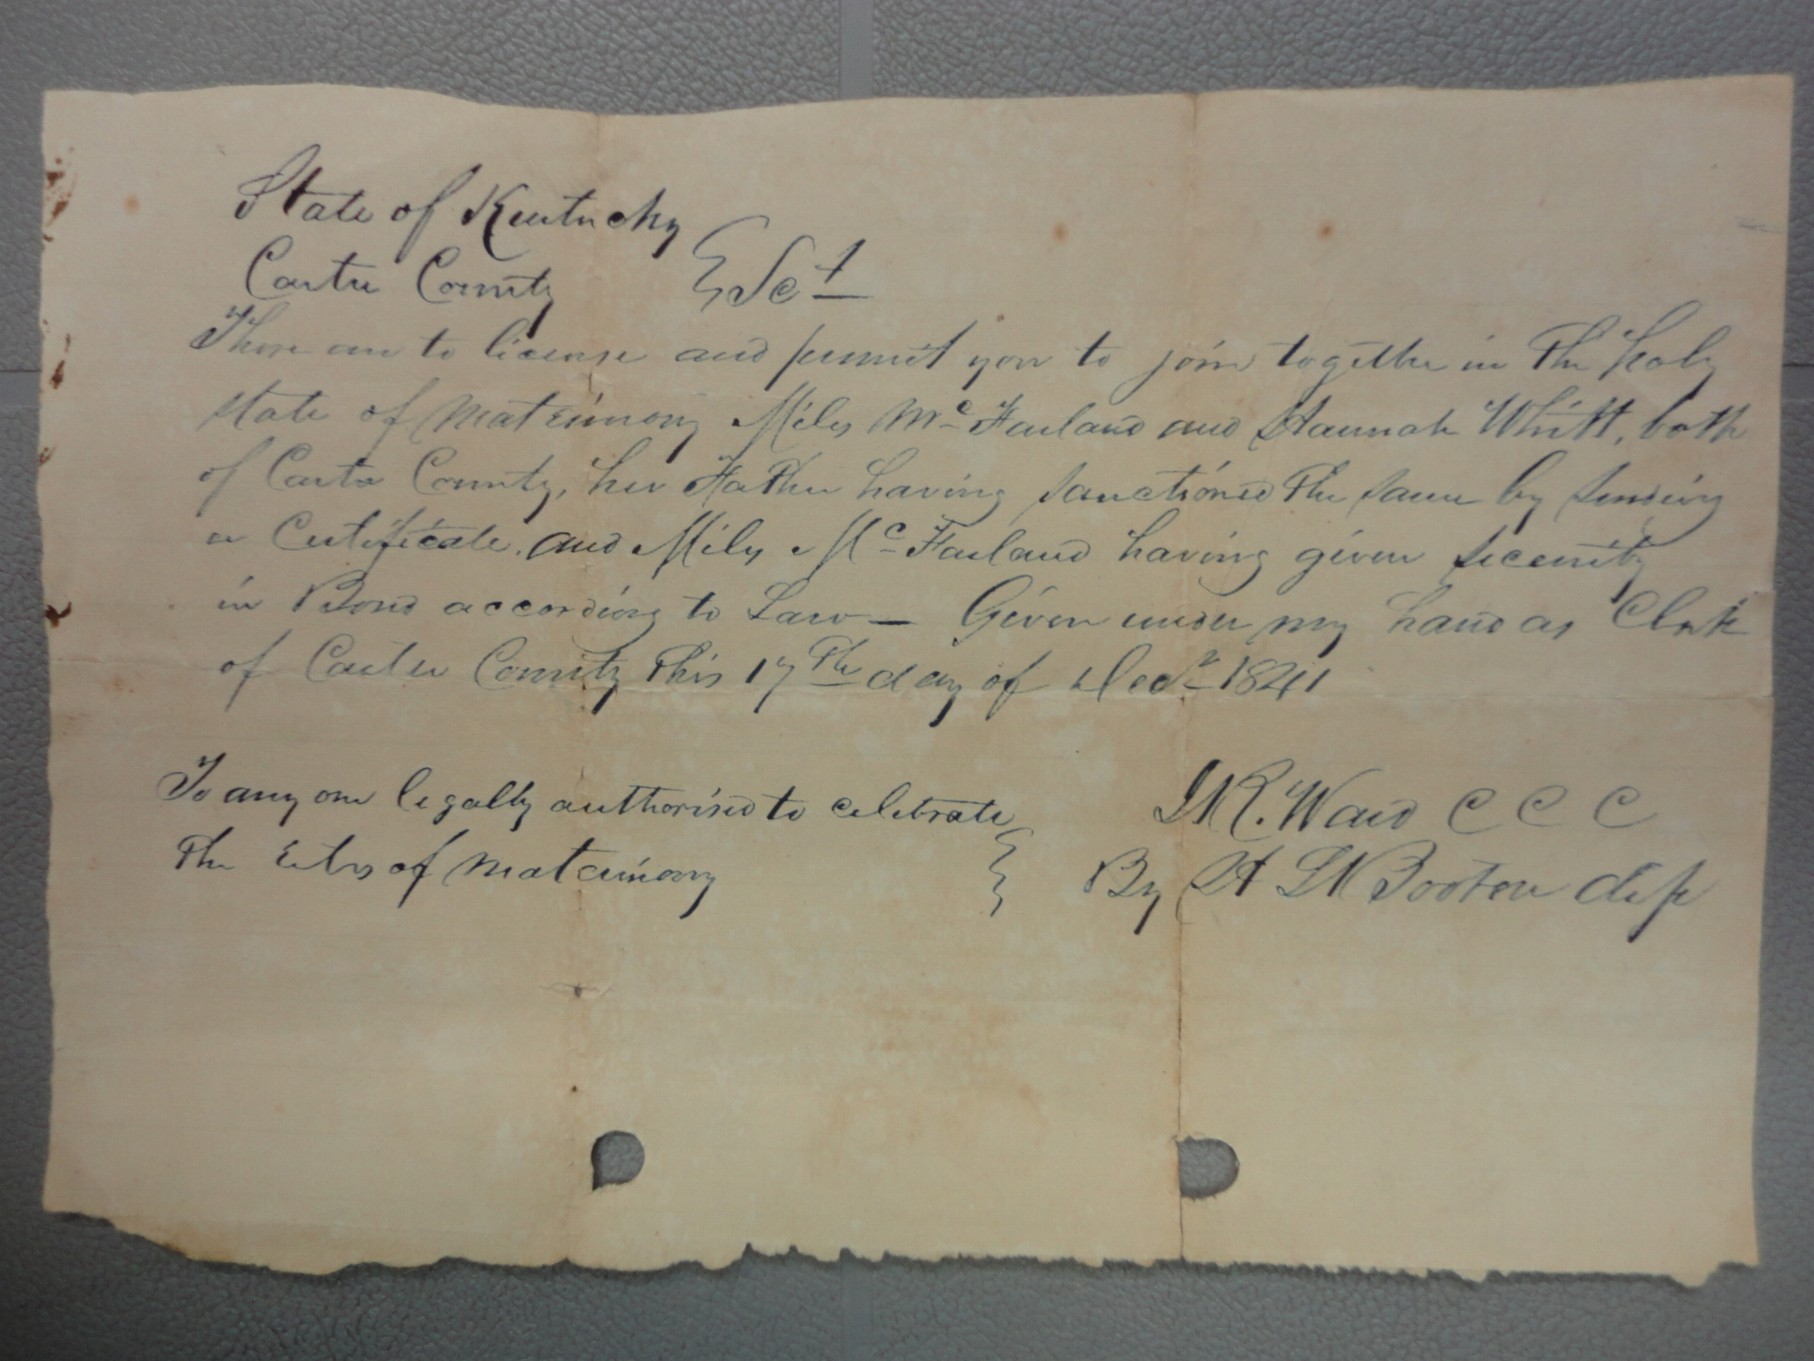 State of Kentucky
Carter County } Sct
These are to license and permit you to join together in the holy
state of matrimony Miles McFarland and Hannah Whitt, both
of Carter County, her Father having sanctioned the same by sending
a Certificate, and Miles McFarland having given security
in Bond according to Law — Given under my hand as Clerk
of Carter County this 17th day of Decr 1841
To any one legally authorised to celebrate
the rites of matrimony }
Ward C C C
By H Booten dep